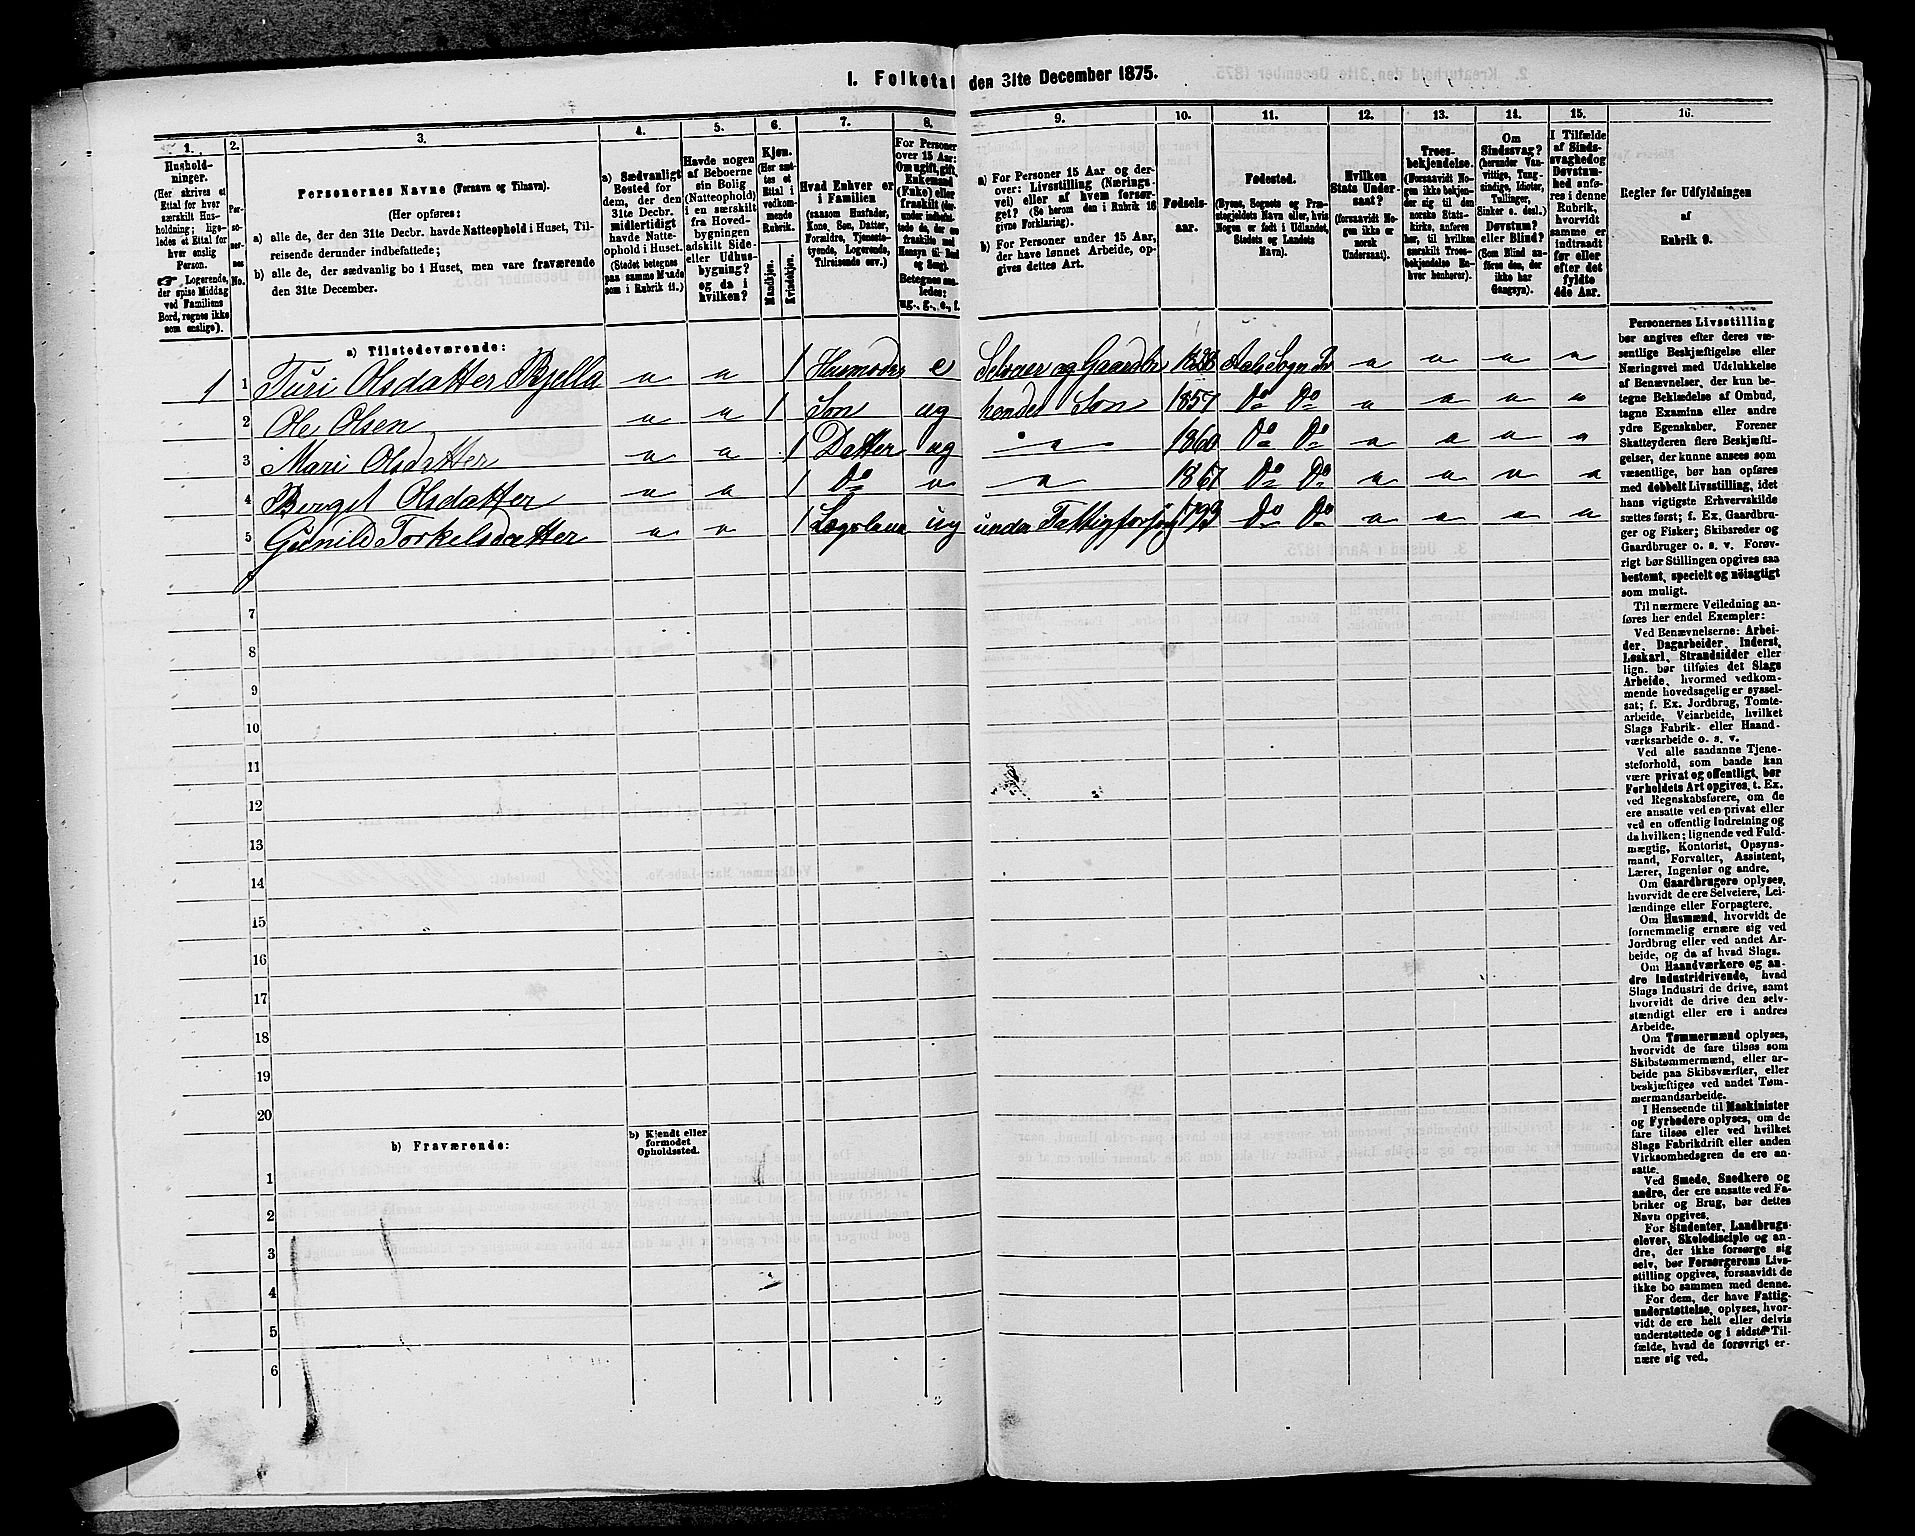 1. Folketal den 31te December 1875.
1. 2. 3. 4. 5. 6. 7. 8. 9. 10. 11. 12. 13. 14. 15. 16.
Hushold-
ninger.
(Her skrives et
Ettal for hver
særskilt Hus-
holdning; lige-
ledes et Ettal for
hver enslig
Person.
Logerende,
der spise Middag
ved Familiens
Bord, regnes ikke
som enslige).
Per-
so-
ner-
nes
No.
Personernes Navne (Fornavn og Tilnavn).
(Her opføres:
a) alle de, der den 31te Decbr. havde Natteophold i Huset, Til-
reisende derunder indbefattede;
b) alle de, der sædvanlig bo i Huset, men vare fraværende
den 31te December.
a) Sædvanligt
Bosted for
dem, der den
31te Decbr.
midlertidigt
havde Natte-
ophold i Huset.
(Stedet betegnes
paa samme Maade
som i Rubrik 11.)
Havde nogen
af Beboerne
sin Bolig
(Natteophold)
i en særskilt
fra Hoved-
bygningen
adskilt Side-
eller Udhus-
bygning?
og da i
hvilken?
Kjøn.
(Her sæt-
tes et
Ettal i
vedkom-
mende
Rubrik.
Mandkjøn.
Kvindekjøn.
Hvad Enhver er
i Familien
(saasom Husfader,
Kone, Søn, Datter,
Forældre, Tjeneste-
tyende, Logerende,
Tilreisende osv.)
For Personer
over 15 Aar:
Om ugift, gift,
Enkemand
(Enke) eller
fraskilt
Betegnes saa-
ledes:
ug., g., e., f.
a) For Personer 15 Aar og der-
over: Livsstilling (Nærings-
vei) eller af hvem forsør-
get? (Se herom den i Rubrik 16
givne Forklaring).
b) For Personer under 15 Aar,
der have lønnet Arbeide, op-
gives dettes Art.
Fødsels-
aar.
Fødested.
(Byens, Sognets og Præ-
stegjeldets Navn eller, hvis
Nogen er født i Udlandet,
Stedets og Landets
Navn).
Hvilken
Stats Under-
saat?
(forsaavidt No-
gen ikke er
norsk
Undersaat).
Troes-
bekjendelse.
(Forsaavidt No-
gen ikke bekjen-
der sig til den
norske Stats-
kirke, anføres
her, til hvilken
særskilt Troes-
bekjendelse En-
hver henhører).
Om
Sindssvag?
(herunder Van-
vittige, Tung-
sindige, Idioter,
Tullinger,
Sinker o. desl.).
Døvstum?
eller Blind?
(Som Blind an-
føres den, der
ikke har
Gangsyn).
I Tilfælde
af Sinds-
svaghed og
Døvstum-
hed anfø-
res i denne
Rubrik,
hvorvidt
samme er
indtraadt
før eller
efter det
fyldte
4de Aar.
Regler for Udfyldningen
af
Rubrik 9.
a) Tilstedeværende:
1 1 Turi Olsdatter Bjella " " 1 Husmoder e Selveier og Gaardbr 1828 Aals Sogn " " " "
2 Ole Olsen " " 1 Søn ug hendes Søn 1857 Do Do " " " "
3 Mari Olsdatter " " 1 Datter ug " 1860 Do Do " " " "
4 Berget Olsdatter " " 1 Do " " 1867 Do Do " " " "
5 Gunild Torkelsdatter " " 1 ug under Fattigforsørg 1793 Do Do " " " "
6
7
8
9
10
11
12
13
14
15
16
17
18
19
20
b) Fraværende:
b) Kjendt eller
formodet
Opholdssted.
1
2
3
4
5
6
Personernes Livsstilling
bør angives efter deres væ-
sentlige Beskjæftigelse eller
Næringsvei med Udelukkelse
af Benævnelser, der kun be-
tegne Beklædelse af Ombud,
tagne Examina eller andre
ydre Egenskaber. Forener
Skatteyderen flere Beskjæfti-
gelser, der kunne ansees som
væsentlige, bør han opføres
med dobbelt Livsstilling, idet
hans vigtigste Erhvervskilde
sættes først; f. Ex. Gaardbru-
ger og Fisker; Skibsreder og
Gaardbruger o. s. v. Forøv-
rigt bør Stillingen opgives saa
bestemt, specielt og nøiagtigt
som muligt.
Til nærmere Veiledning an-
føres her endel Exempler:
Ved Benævnelserne: Arbei-
der, Dagarbeider, Inderst,
Løskarl, Strandsidder eller
lign. bør tilføies det Slags
Arbeide, hvormed vedkom-
mende hovedsagelig er syssel-
sat; f. Ex. Jordbrug, Tomte-
arbeide, Veiarbeide, hvilket
Slags Fabrik- eller Haand-
værksarbeide o. s. v.
Ved alle saadanne Tjene-
steforhold, som baade kan
være privat og offentligt, bør
Forholdets Art opgives, t. Ex.
ved Regnskabsførere, om de
ere ansatte ved en privat eller
ved en offentlig Indretning og
da hvilken; lignende ved Fuld-
mægtig, Kontorist, Opsyns-
mand, Forvalter, Assistent,
Lærer, Ingeniør og andre.
Om Gaardbrugere oplyses,
hvorvidt de ere Selveiere, Lei-
lændinge eller Forpagtere.
Om Husmænd, hvorvidt de
fornemmelig ernære sig ved
Jordbrug eller ved andet Ar-
beide, og da af hvad Slags.
Om Haandværkere og an-
dre Industridrivende, hvad
Slags Industri de drive, samt
hvorvidt de drive den selv-
stændigt eller ere i andres
Arbeide.
Om Tømmermænd oplyses,
hvorvidt de fare tilsøs som
Skibstømmermænd, eller ar-
beide paa Skibsværfter, eller
beskjæftiges ved andet Tøm-
mermandsarbeide.
I Henseende til Maskinister
og Fyrbødere oplyses, om de
fare tilsøs eller ved hvilket
Slags Fabrikdrift eller anden
Virksomhedsgren de ere an-
satte.
Ved Smede, Snedkere og
andre, der ere ansatte ved Fa-
briker og Brug, bør dettes
Navn opgives.
For Studenter, Landbrugs-
elever, Skoledisciple og an-
dre, der ikke forsørge sig
selv, bør Forsørgerens Livs-
stilling opgives, forsaavidt de
ikke bo sammen med denne.
For dem, der have Fattig-
understøttelse, oplyses, hvor-
vidt de ere helt eller delvis
understøttede og i sidste Til-
fælde, hvad de forøvrigt er-
nære sig ved.